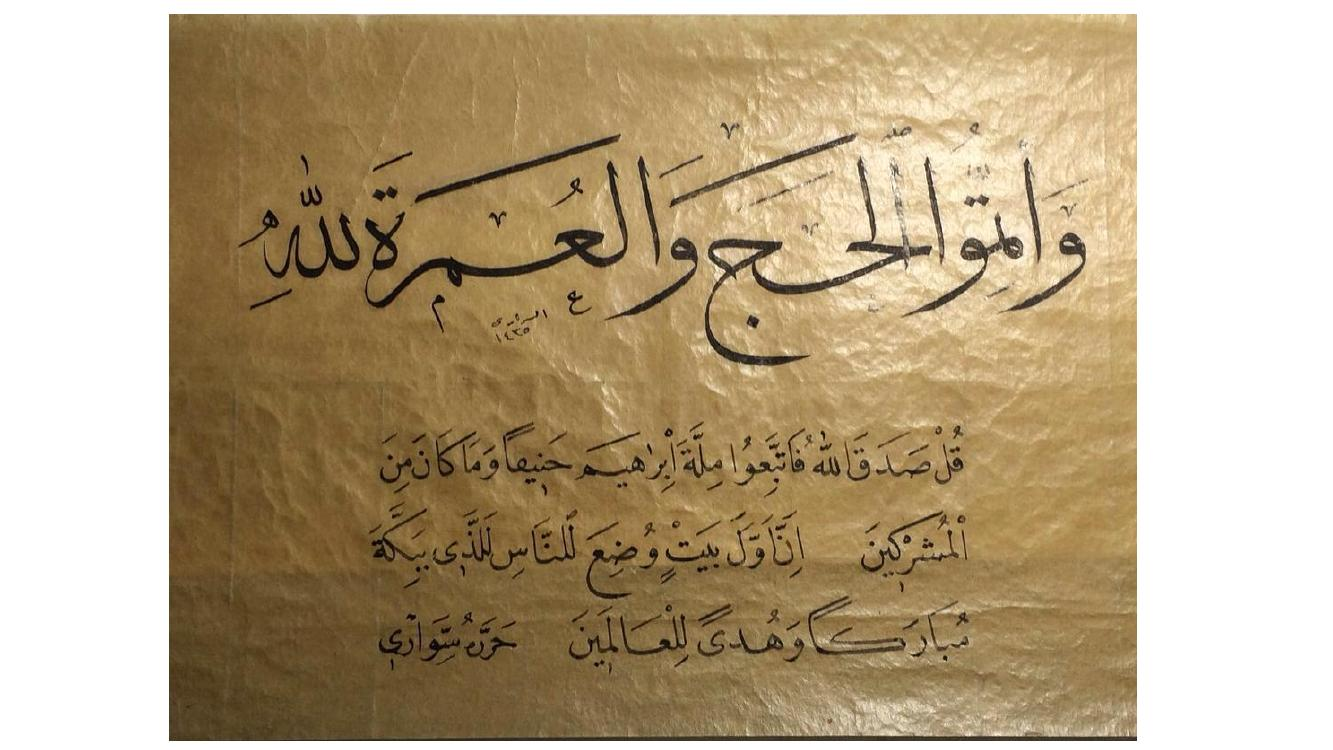 وَأَتِمُّوا الْحَجَّ وَالْعُمْرَةَ لِلّٰهِ
١٤٣٥
قُلْ صَدَقَ اللهُ فَاتَّبِعُوا مِلَّةَ اِبْرٰهِيمَ حَنِيفًا وَمَا كَانَ مِنَ
الْمُشْرِكِينَ اِنَّ اَوَّلَ بَيْتٍ وُضِعَ لِلنَّاسِ لَلَّذِى بِبَكَّةَ
مُبَارَكًا وَهُدًى لِلْعَالَمِينَ حَرَّرَهُ سِّوَارِى